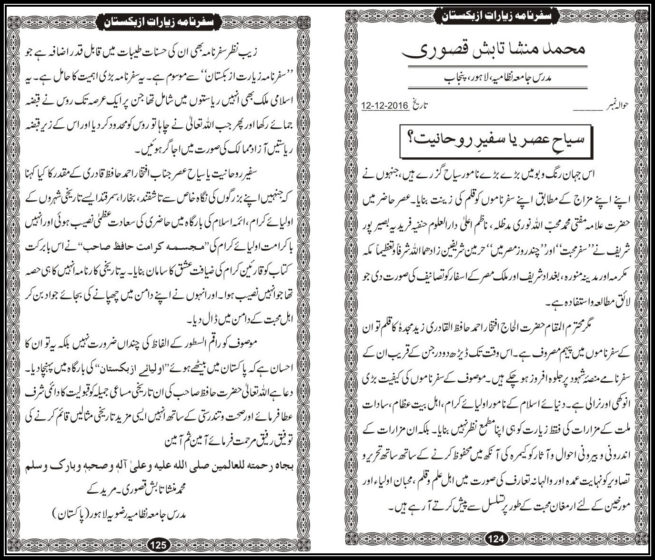 سفرنامہ زیارات ازبکستان
محمد منشا تابش قصوری
مدرس جامعہ نظامیہ، لاہور، پنجاب
حوالہ نمبر ______ تاریخ 12-12-2016
سیاحِ عصر یا سفیرِ روحانیت؟
اس جہان رنگ و بو میں بڑے بڑے نامور سیاح گزرے ہیں، جنہوں نے
اپنے اپنے مزاج کے مطابق اپنے سفرناموں کو قلم کی زینت بنایا۔ عصر حاضر میں
حضرت علامہ مفتی محمد محبّ اللہ نوری مدظلہ، ناظم اعلیٰ دارالعلوم حنفیہ فریدیہ بصیر پور
شریف نے ’’سفر محبت‘‘ اور ’’چند روز مصر میں‘‘ حرمین شریفین زادھما اللہ شرفا و تعظیما مکہ
مکرمہ اور مدینہ منورہ، بغداد شریف اور ملک مصر کے اسفار کو تصانیف کی صورت دی جو
لائق مطالعہ و استفادہ ہے۔
مگر محترم المقام حضرت الحاج افتخار احمد حافظ القادری زید مجدہٗ کا قلم تو ان
کے سفرناموں میں پیہم مصروف ہے۔ اس وقت تک ڈیڑھ دو درجن کے قریب ان کے
سفرنامے منصۂ شہود پر جلوہ افروز ہو چکے ہیں۔ موصوف کے سفرناموں کی کیفیت بڑی
انوکھی اور نرالی ہے۔ دنیائے اسلام کے نامور اولیائے کرام، اہل بیت عظام، سادات
ملت کے مزارات کی فقط زیارت کو ہی اپنا مطمع نظر نہیں بنایا۔ بلکہ ان مزارات کے
اندرونی و بیرونی احوال و آثار کو کیمرہ کی آنکھ میں محفوظ کرنے کے ساتھ ساتھ تحریر و
تصاویر کو نہایت عمدہ اور والہانہ تعارف کی صورت میں اہل علم و قلم، محبان اولیاء اور
مورخین کے لئے ارمغان محبت کے طور پر تسلسل سے پیش کرتے آ رہے ہیں۔
124
سفرنامہ زیارات ازبکستان
زیب نظر سفرنامہ بھی ان کی حسنات طیبات میں قابل قدر اضافہ ہے جو
’’سفرنامہ زیارت ازبکستان‘‘ سے موسوم ہے۔ یہ سفرنامہ بڑی اہمیت کا حامل ہے۔ یہ
اسلامی ملک بھی انہیں ریاستوں میں شامل تھا جن پر ایک عرصہ تک روس نے قبضہ
جمائے رکھا اور پھر جب اللہ تعالیٰ نے چاہا تو روس کو محدود کر دیا اور اس کے زیر قبضہ
ریاستیں آزاد ممالک کی صورت میں اجاگر ہوئیں۔
سفیر روحانیت یا سیاح عصر جناب افتخار احمد حافظ قادری کے مقدر کا کیا کہنا
کہ جنہیں اپنے بزرگوں کی نگاہ خاص سے تاشقند، بخارا، سمرقند ایسے تاریخی شہروں کے
اولیائے کرام، ائمہ اسلام کی بارگاہ میں حاضری کی سعادت عظمیٰ نصیب ہوئی اور انہیں
با کرامت اولیائے کرام کی ’’مجسمہ کرامت حافظ صاحب‘‘ نے اس بابرکت
کتاب کو قارئین کرام کی ضیافت عشق کا سامان بنایا۔ یہ تاریخی کارنامہ انہیں کا ہی حصہ
تھا جو انہیں نصیب ہوا۔ اور انہوں نے اپنے دامن میں چھپانے کی بجائے جواد بن کر
اہل محبت کے دامن میں ڈال دیا۔
موصوف کو راقم السطور کے الفاظ کی چنداں ضرورت نہیں بلکہ یہ تو ان کا
احسان ہے کہ پاکستان میں بیٹھے ہوئے ’’اولیائے ازبکستان‘‘ کی بارگاہ میں پہنچا دیا۔
دعا ہے اللہ تعالیٰ حضرت حافظ صاحب کی ان تاریخی مساعی جمیلہ کو قبولیت کا دائمی شرف
عطا فرمائے اور صحت و تندرستی کے ساتھ انہیں ایسی مزید تاریخی مثالیں قائم کرنے کی
توفیق رفیق مرحمت فرمائے آمین ثم آمین
بجاہ رحمتہ للعالمین صلی اللہ علیہ وعلیٰ آلہ وصحبہ وبارک وسلم
محمد منشا تابش قصوری۔ مریدکے
مدرس جامعہ نظامیہ رضویہ لاہور (پاکستان)
125